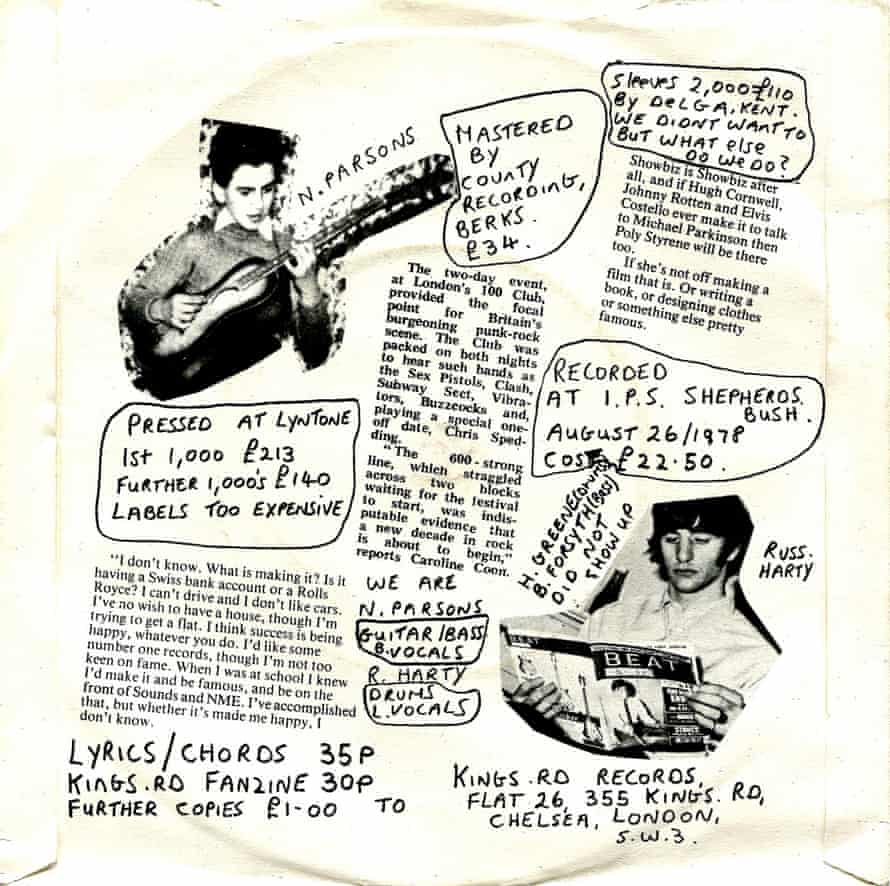 Sleeves 2,000 £110
By DELGA, KENT.
WE DIDNT WANT TO
BUT WHAT else
DO WE DO?
N. PARSONS
MASTERED
BY
COUNTY
RECORDING,
BERKS.
£34.
Showbiz is Showbiz after
all, and if Hugh Cornwell,
Johnny Rotten and Elvis
Costello ever make it to talk
to Michael Parkinson then
Poly Styrene will be there
too.
If she's not off making a
film that is. Or writing a
book, or designing clothes
or something else pretty
famous.
The two-day event,
at London's 100 Club,
provided the focal
point for Britain's
burgeoning punk-rock
scene. The Club was
packed on both nights
to hear such bands as
the Sex Pistols, Clash,
Subway Sect, Vibra-
tors, Buzzcocks and,
playing a special one-
off date, Chris Sped-
ding.
"The 600-strong
line, which straggled
across two blocks
waiting for the festival
to start, was indis-
putable evidence that
a new decade in rock
is about to begin,"
reports Caroline Coon.
RECORDED
AT I.P.S. SHEPHERDS.
BUSH.
AUGUST 26/1978
COST £22.50.
PRESSED AT LYNTONE
1st 1,000 £213
FURTHER 1,000's £140
LABELS TOO EXPENSIVE
H. GREENE
B. FORSYTH (BASS)
DID NOT
SHOW UP
RUSS.
HARTY
BEAT
"I don't know. What is making it? Is it
having a Swiss bank account or a Rolls
Royce? I can't drive and I don't like cars.
I've no wish to have a house, though I'm
trying to get a flat. I think success is being
happy, whatever you do. I'd like some
number one records, though I'm not too
keen on fame. When I was at school I knew
I'd make it and be famous, and be on the
front of Sounds and NME. I've accomplished
that, but whether it's made me happy, I
don't know.
WE ARE
N. PARSONS
GUITAR/BASS
B. VOCALS
R. HARTY
DRUMS
L. VOCALS
LYRICS/CHORDS 35P
KINGS.RD FANZINE 30P
FURTHER COPIES £1-00 TO
KINGS.RD RECORDS,
FLAT 26, 355 KINGS.RD,
CHELSEA, LONDON,
S.W.3.